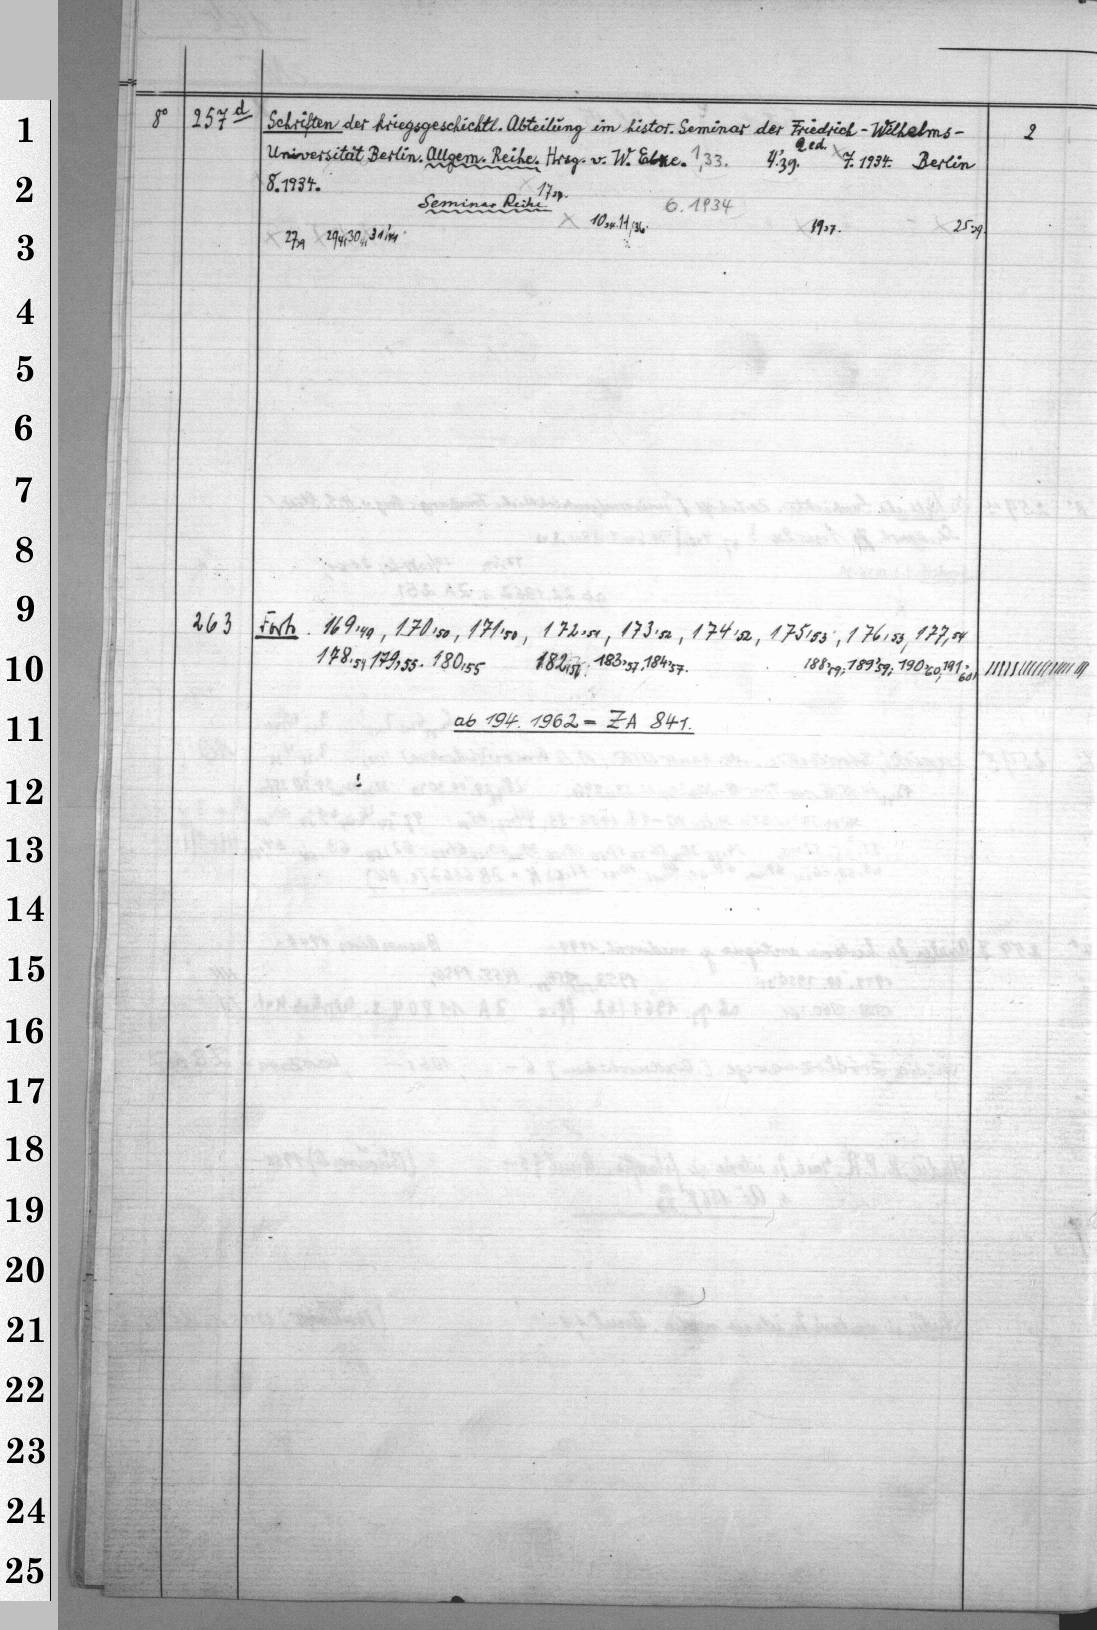 1 8° 257 d Schriften der kriegsgeschichtl. Abteilung im histor. Seminar der Friedrich-Wilhelms- 2
Universität Berlin. Allgem. Reihe. Hrsg. v. W. 1,33. 4,39. 2 ed. × 7. 1934. Berlin
2 8. 1934.
Seminar Reihe × 17 6. 1934
× 10 11/36. × 19 37. × 25 39.
3 × 27 39 × 29 41, 30 41, 31 '41
4
5
6
7
8
9 263 Forts. 169,49, 170,50, 171,50, 172,51, 173,52, 174,52, 175,53, 176,53, 177,54
10 178,54 179,55. 180,55 182,56 183,57, 184,57. 188,59, 189,59, 190,60, 191,60,
11 ab 194. 1962 = ZA 841.
12
13
14
15
16
17
18
19
20
21
22
23
24
25